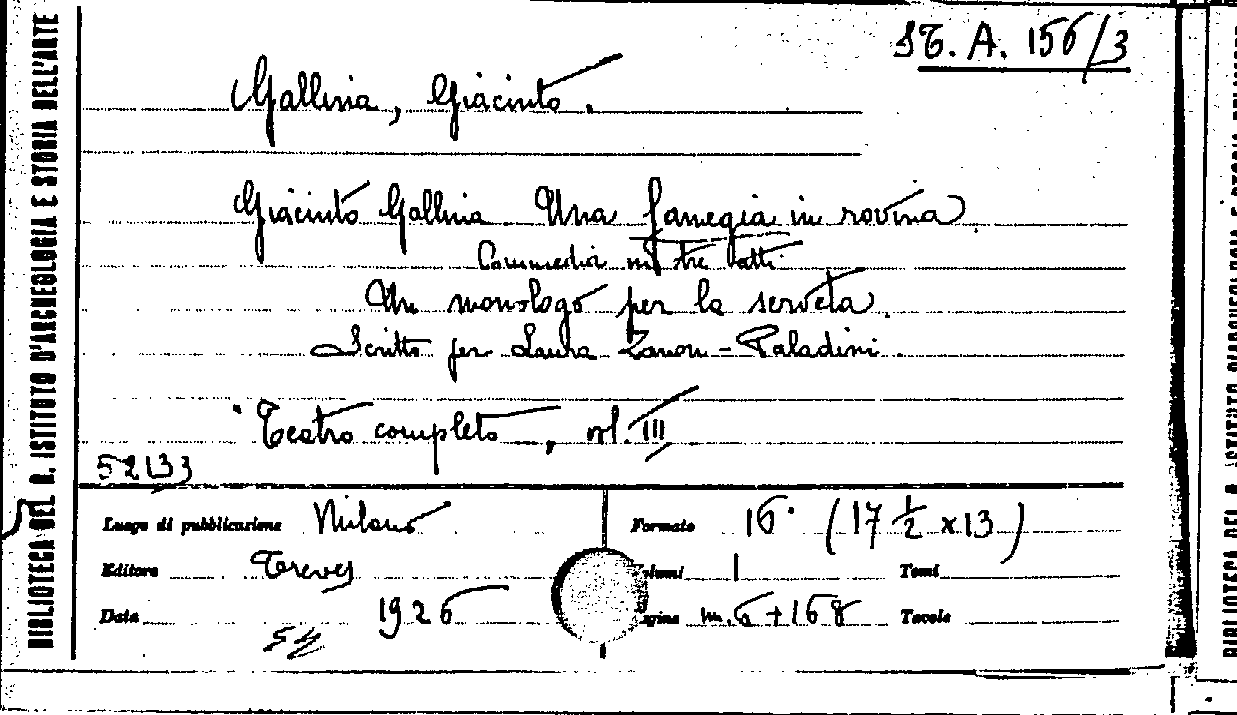 BIBLIOTECA DEL R. ISTITUTO D'ARCHEOLOGIA E STORIA DELL'ARTE
ST. A. 156/3
Gallina, Giacinto.
Giacinto Gallina Una famegia in rovina
Commedia in tre atti
Un monologo per la serveta.
Scritto per Laura Zanon-Paladini.
Teatro completo, vol. III
52133
Luogo di pubblicazione Milano
Formato 16° (17 ½ x 13)
Editore Treves
Volumi 1
Tomi
Data 1926
Pagine m. 6 + 168
Tavole